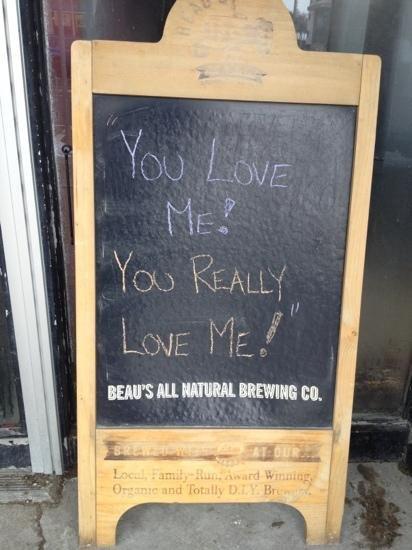 "You Love
Me!
You Really
Love Me!"
BEAU'S ALL NATURAL BREWING CO.
BREWED WITH AT OUR
Local, Family-Run, Award Winning,
Organic and Totally D.I.Y. Brewery.